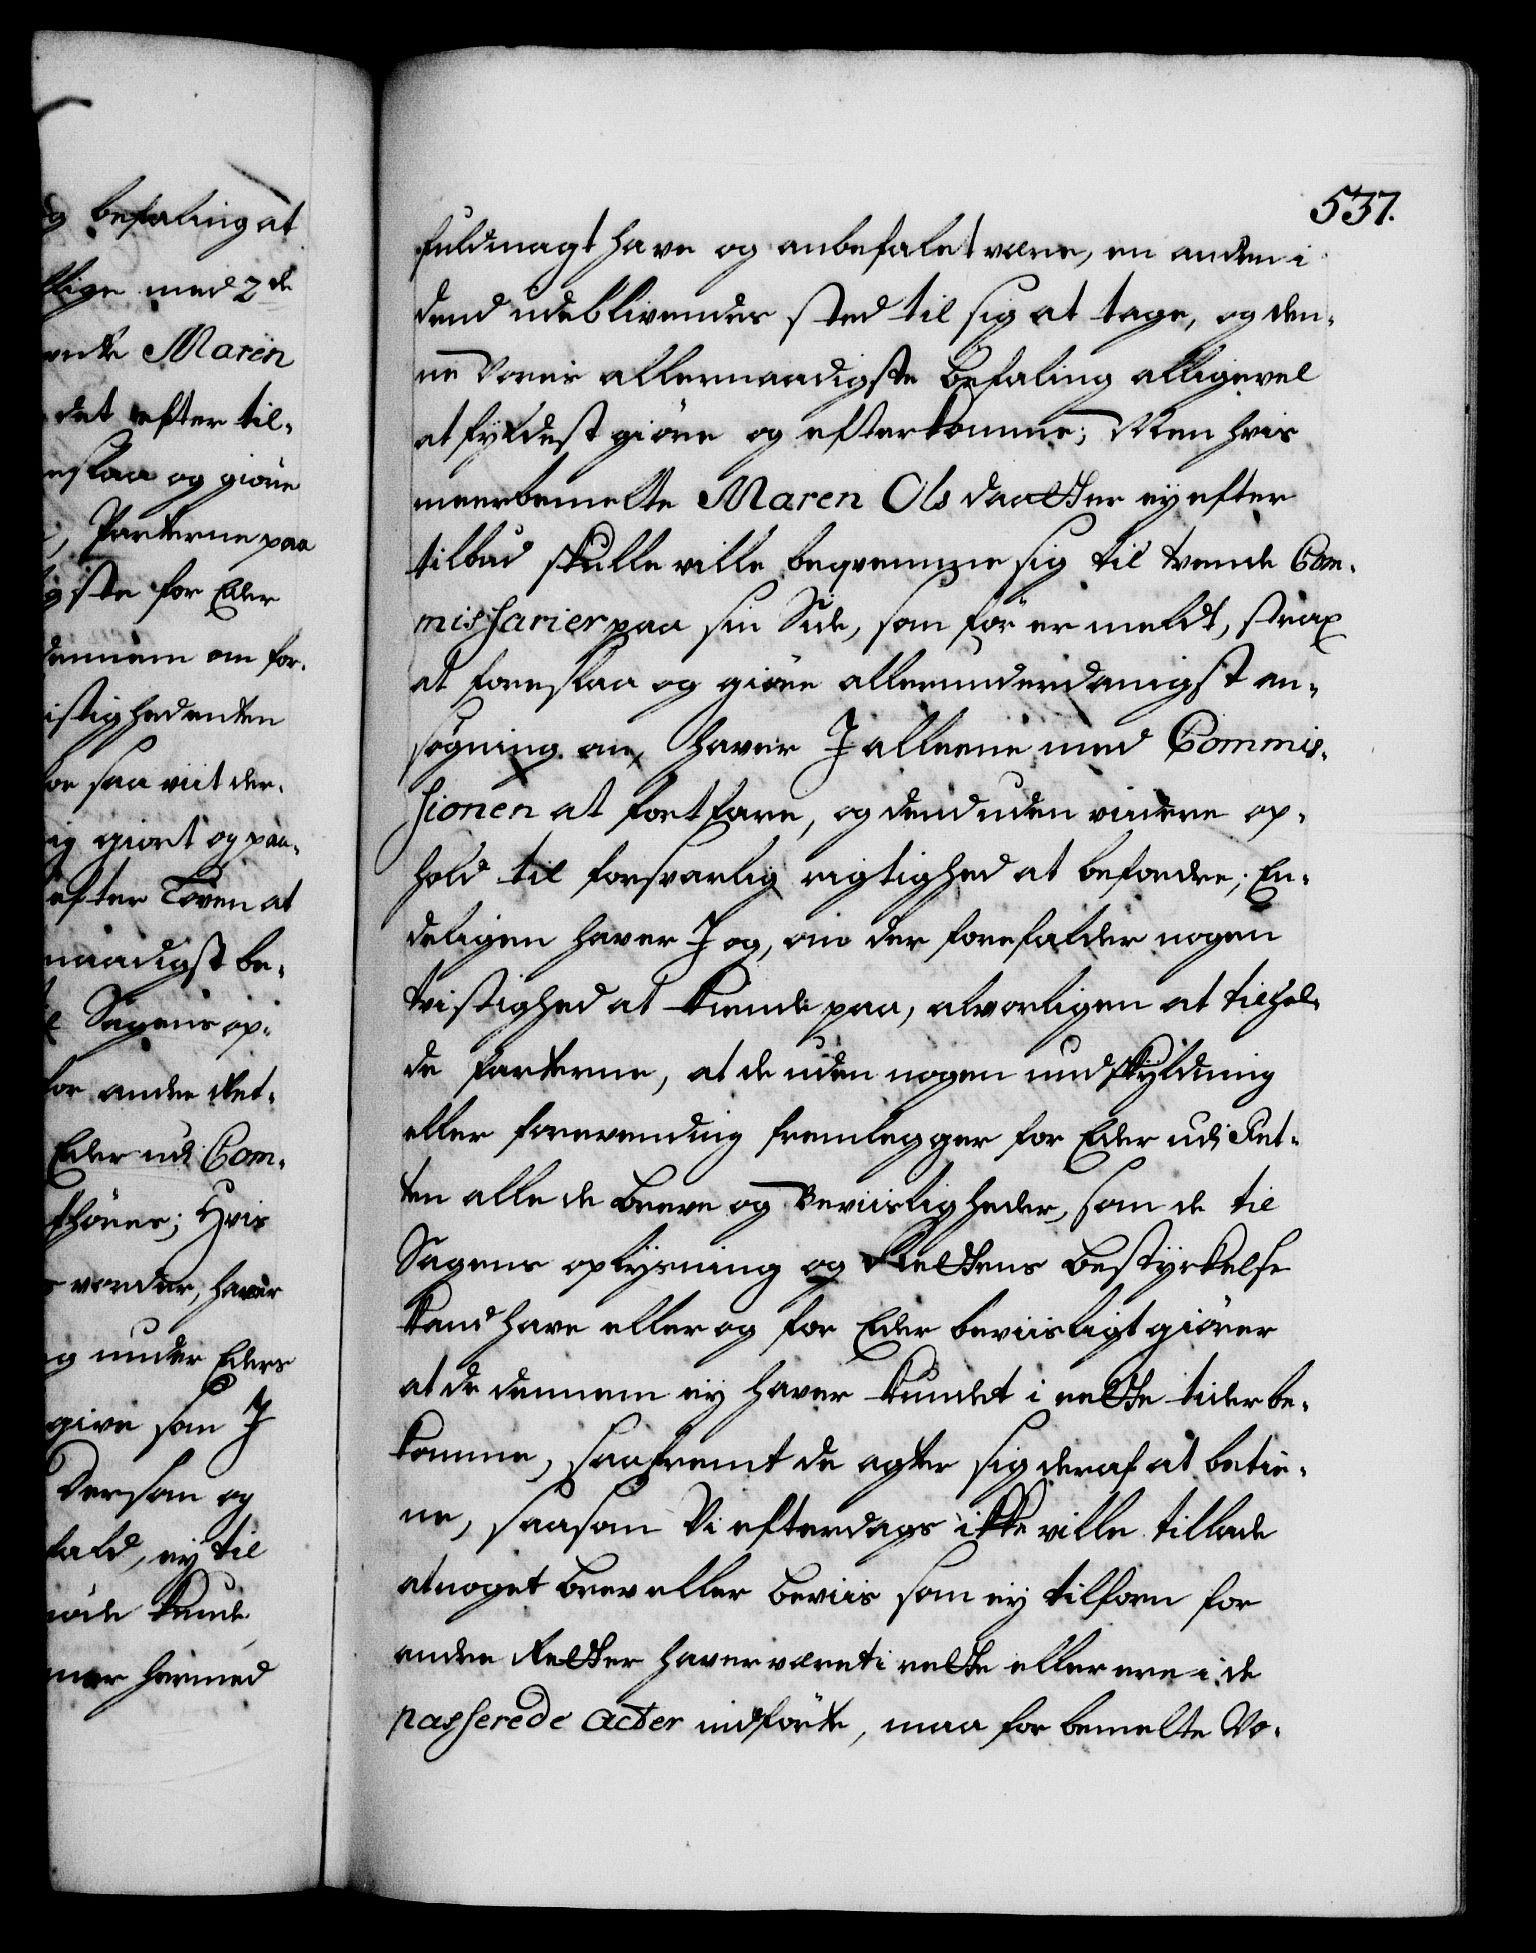 og befaling at
lige med 2de
endte Maren
det efter til-
eslaa og giöre
, Parterne paa
gste for Eder
dennem om for-
istighed enten
or saa viit der-
ig giort og paa-
efter Loven at
naadigst be-
l Sagens op-
for andre Ret-
Eder udi Com-
fhörer; Hvis
vorder, haver
g under Eders
give som J
Dersom og
fald, ey til
möde kunde
ner hermed
537.
fuldmagt have og anbefalet være, en anden i
dend udeblivendes sted til sig at tage, og den-
ne Vores allernaadigste befaling alligevel
at fyldest giöre og efterkomme; Men hvis
meerbemelte Maren Ols daatter ey efter
tilbud skulle ville beqvemme sig til tvende Com-
missarier paa sin Side, som för er meldt, strax
at foreslaa og giöre allerunderdanigst an-
sögning om, haver J alleene med Commis-
sionen at fortfare, og dend uden videre op-
hold til forsvarlig rigtighed at befordre; En-
deligen haver J og, om der forefalder nogen
tvistighed at kiende paa, alvorligen at tilhol-
de Parterne, at de uden nogen undskyldning
eller forevending fremlegger for Eder udi Ret-
ten alle de breve og Beviisligheder, som de til
Sagens oplysning og Rettens bestyrkelse
kand have eller og for Eder beviisligt giörer
at de dennem ey haver kundet i rette tider be-
komme, saafremt de agter sig deraf at betie-
ne, saasom Vi efterdags ikke ville tillade
at noget brev eller beviis som ey tilforn for
andre Retter haver været i rette eller ere i de
passerede Acter indförte, maa for bemelte Vo-